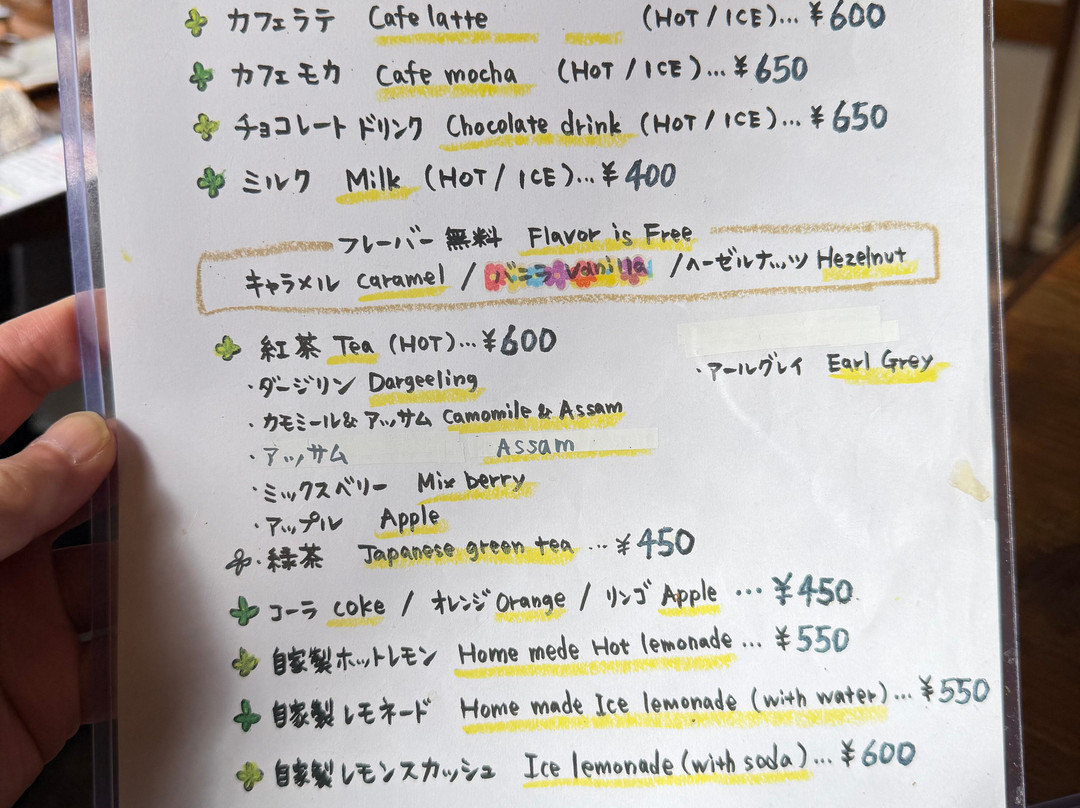 カフェラテ Cafe latte (HOT / ICE)...¥600
カフェモカ Cafe mocha (HOT / ICE)...¥650
チョコレートドリンク Chocolate drink (HOT / ICE)...¥650
ミルク Milk (HOT / ICE)...¥400
フレーバー 無料 Flavor is Free
キャラメル caramel / バニラ vanilla / ヘーゼルナッツ Hezelnut
紅茶 Tea (HOT)...¥600
・アールグレイ Earl Grey
・ダージリン Dargeeling
・カモミール&アッサム Camomile & Assam
・アッサム Assam
・ミックスベリー Mix berry
・アップル Apple
緑茶 Japanese green tea ...¥450
コーラ coke / オレンジ Orange / リンゴ Apple ...¥450
自家製ホットレモン Home mede Hot lemonade ...¥550
自家製レモネード Home made Ice lemonade (with water)...¥550
自家製レモンスカッシュ Ice lemonade (with soda)...¥600